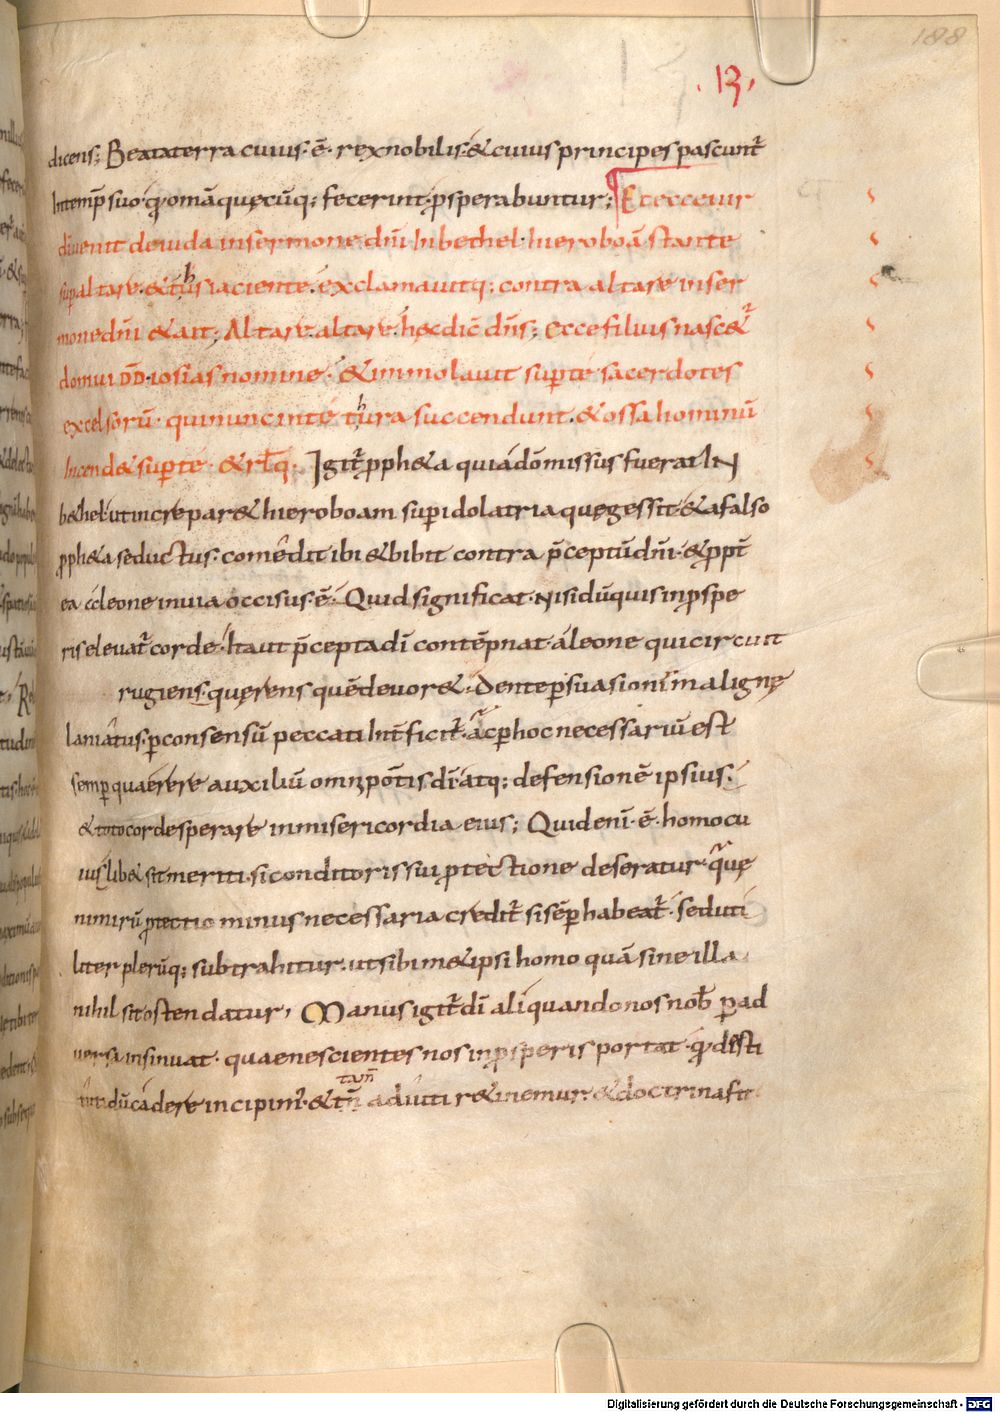 188
.13.
dicens; Beata terra cuius·ē·rex nobilis·&cuius principes pascunt᷑
In temp̄ suo·ꝙ omā quęcūq; fecerint·ꝓsperabuntur; Et ecce uir
dī uenit de iuda in sermone dn̄i In bethel·hieroboā stante
suꝑ altare·&thus iaciente·exclamauitq; contra altare in ser
mone dn̄i &ait; Altare·altare·hęc dic̄ dn̄s; ecce filius nascet᷑
domui DD̄·iosias nomine·&immolauit suꝑ te sacerdotes
excelsorū·qui nunc in te thura succendunt·&ossa hominū
Incend& suꝑ te·&rl̄q· Igit᷑ ꝓph&a qui a dō missus fuerat IN
b&hel·ut increpar& hieroboam suꝑ idolatria quę gessit·&a falso
ꝓph&a seductus·comēdit ibi &bibit contra p̄ceptū dn̄i·&ꝓpt̄
ea a leone in uia occisus·ē· Quid significat·Nisi dū quis in ꝓspe
ris eleuat᷑ corde·Ita ut p̄cepta dī contēpnat·a leone qui circuit
rugiens·quęrens quē deuor&·Dente ꝑsuasionī malignę
laniatus·ꝑ consensū peccati Int̄ficit᷑·Ac ꝑ hoc necessariū est
semꝑ quaerere auxiliū omnipōtis dī·atq; defensionē ipsius·
&toto corde sperare in misericordia eius; Quid enī·ē·homo cu
ius lib& sit meriti·si conditoris sui ꝓtectione deseratur·quę
nimirū ꝓtectio minus necessaria credit᷑ si sēꝑ habeat᷑·sed uti
liter plerūq; subtrahitur·ut sibi m& ipsi homo quā sine illa
nihil sit ostendatur, Manus igit᷑ dī aliquando nos nob̄ ꝑ ad
uersa insinuat·quae nescientes nos in ꝓsperis portat·ꝙ disti
tuti dū cadere incipim᷑·&tn̄ adiuti r&inemur·&doctrina
tam̄
Digitalisierung gefördert durch die Deutsche Forschungsgemeinschaft - DFG